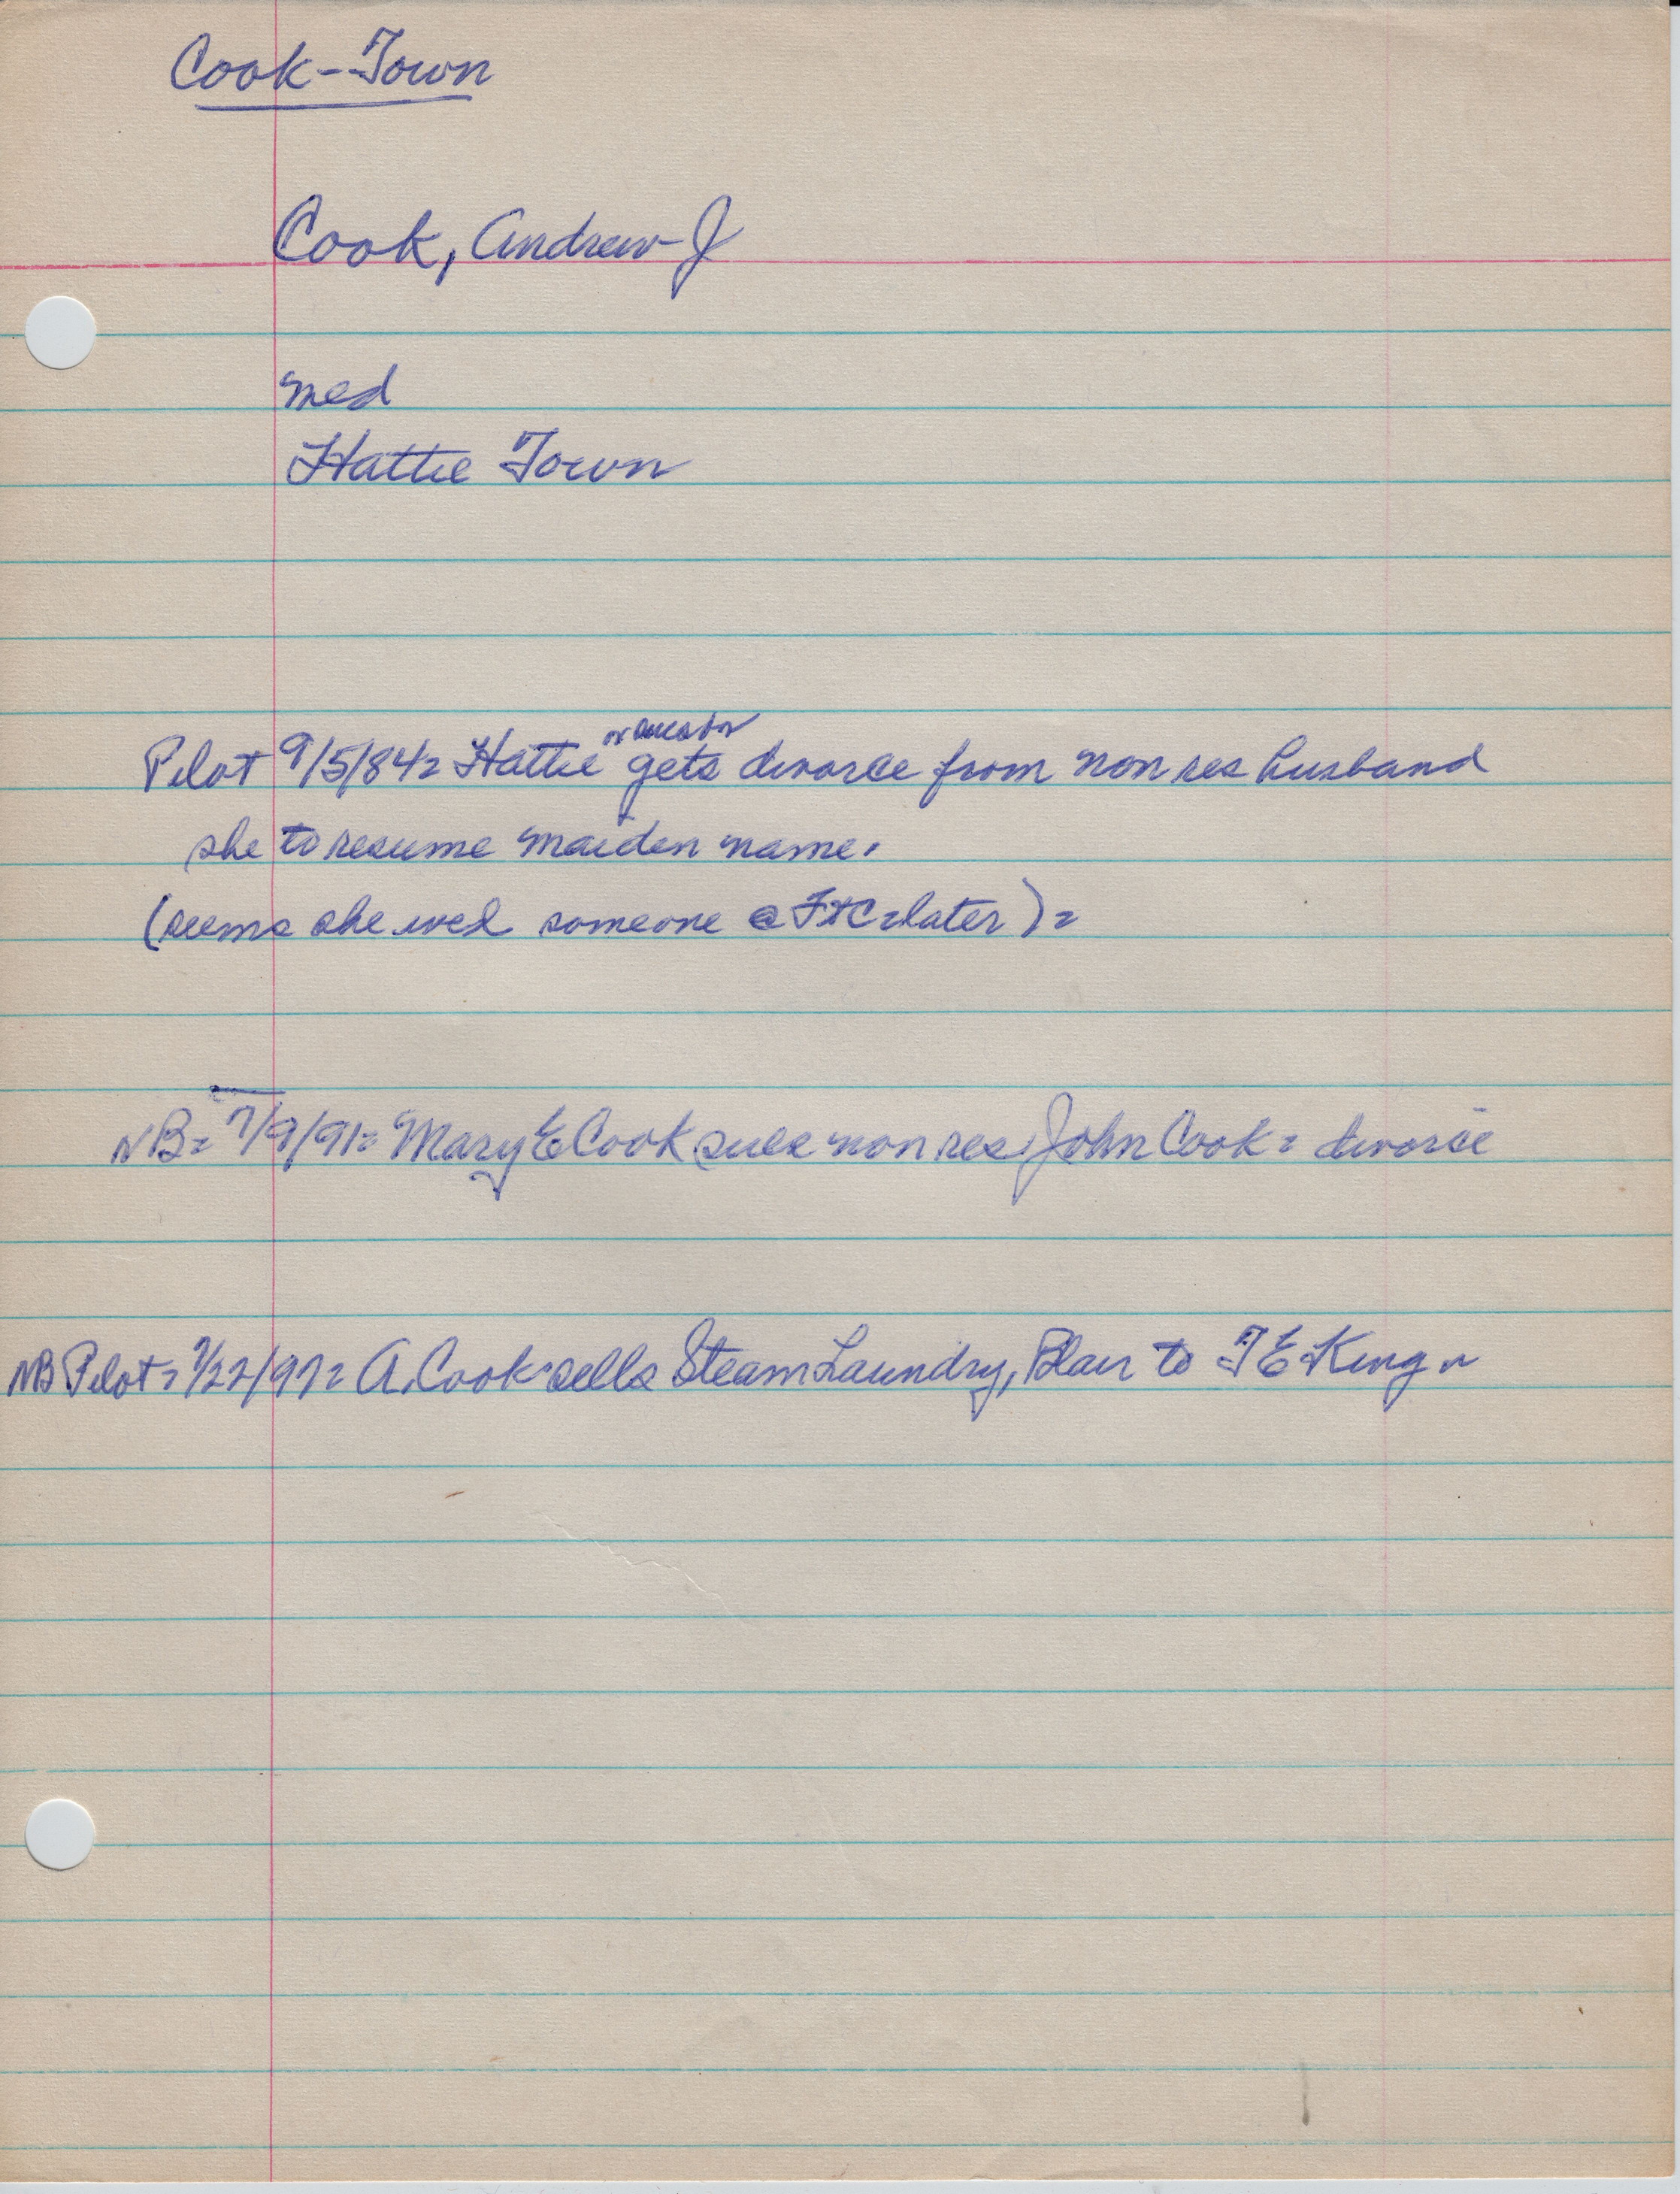 Cook-Town
Cook, Andrew J
med
Hattie Town
Pilot 9/5/84= Hattie gets divorce from non res husband
she to resume maiden name.
(seems she wed someone @ FtC=later)=
NB= 7/9/91= Mary E Cook sues non res John Cook= divorce
NB Pilot= /22/97= A. Cook sells Steam Laundry, Blair to T E King